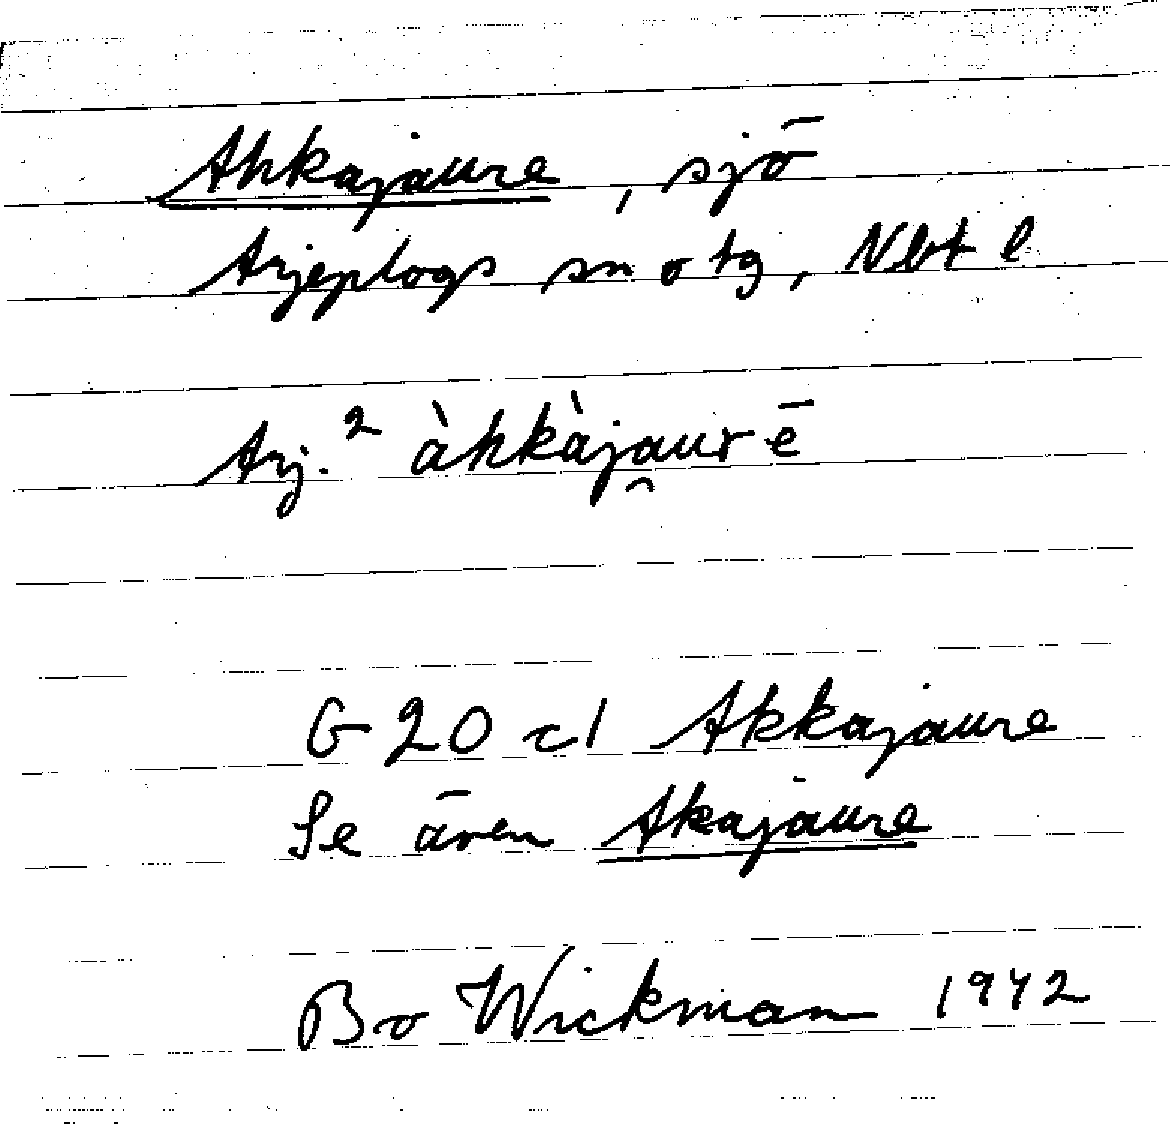 Ahkajaure, sjö
Arjeplogs sn o tg, Nbt l
Arj.² àhkàjau̯rē
G 20 c1 Akkajaure
Se även Akajaure
Bo Wickman 1942